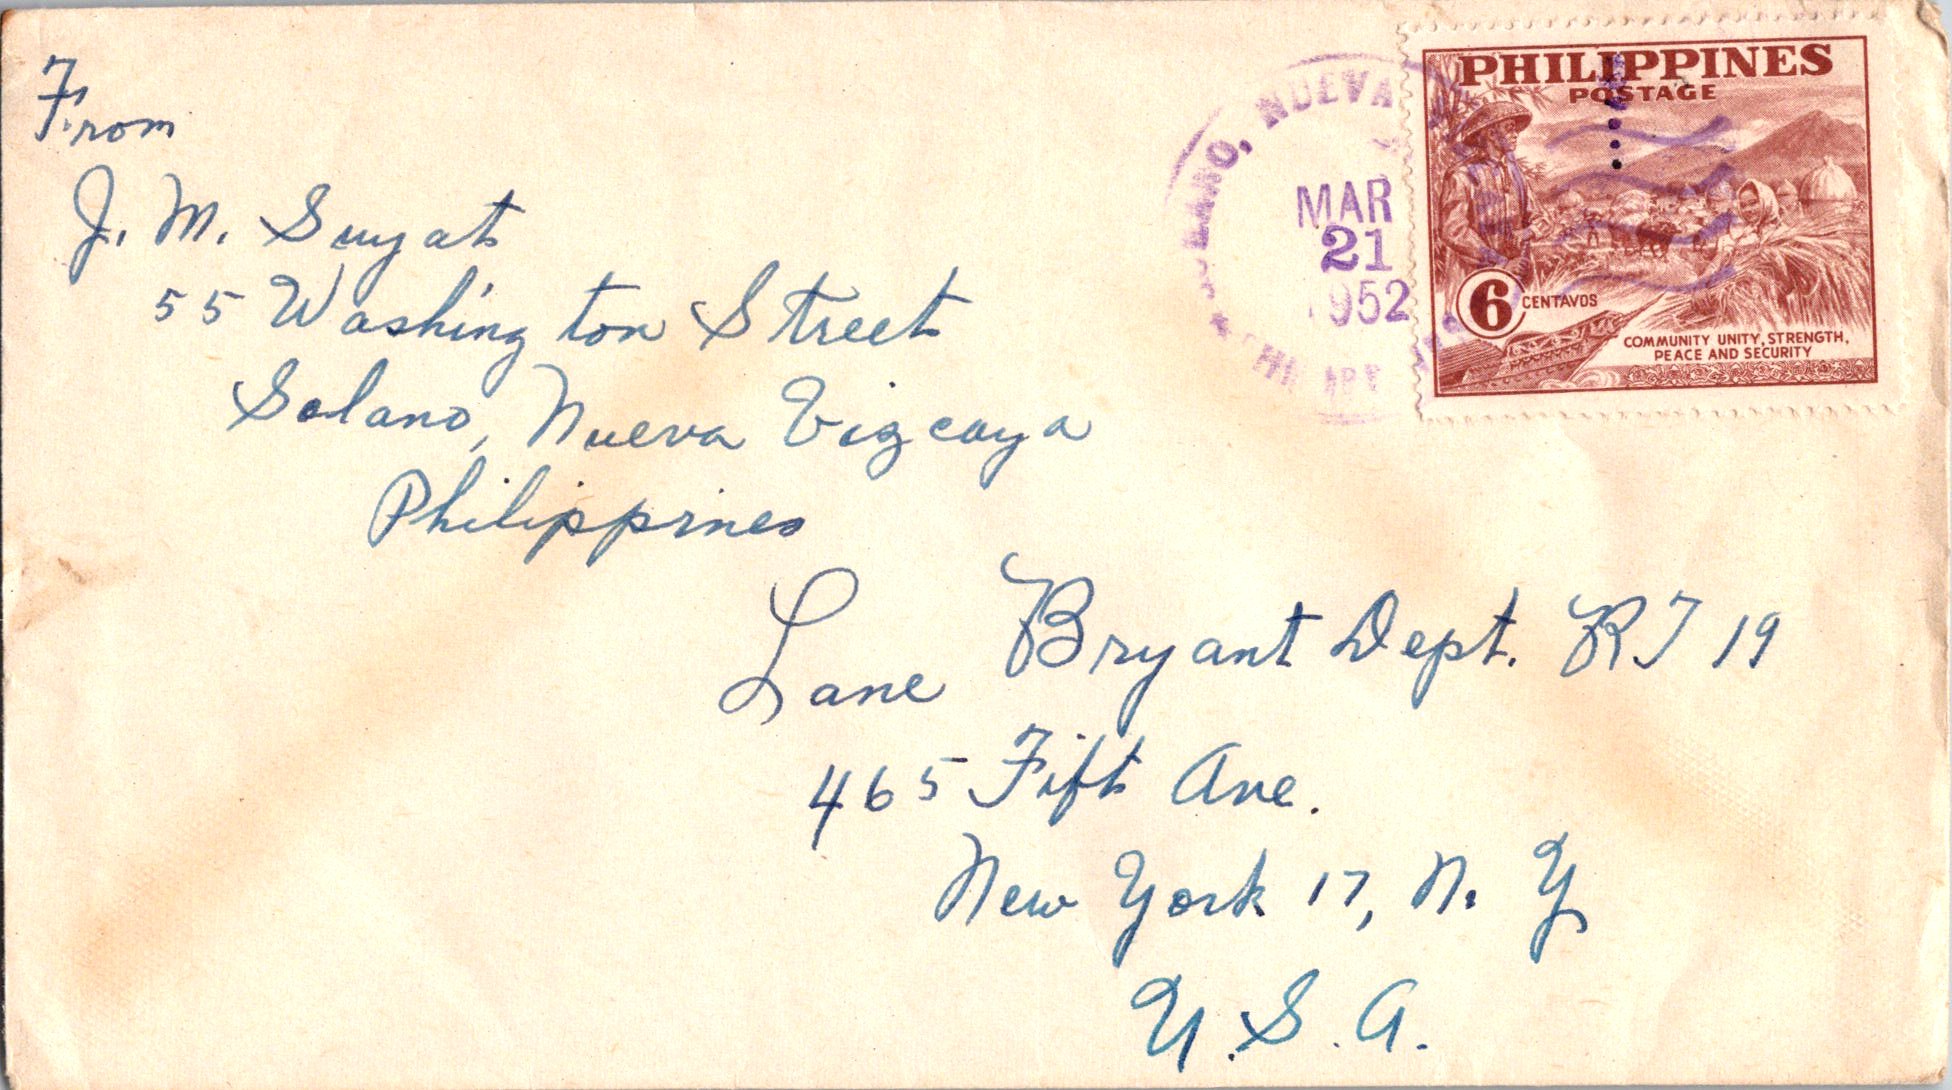 From
J. M. Suyat
55 Washington Street
Solano, Nueva Vizcaya
Philippines
NUEVA
MAR
21
1952
PHILIPPINES
POSTAGE
6 CENTAVOS
COMMUNITY UNITY, STRENGTH,
PEACE AND SECURITY
Lane Bryant Dept. RT 19
465 Fift Ave.
New York 17, N. Y
U. S. A.